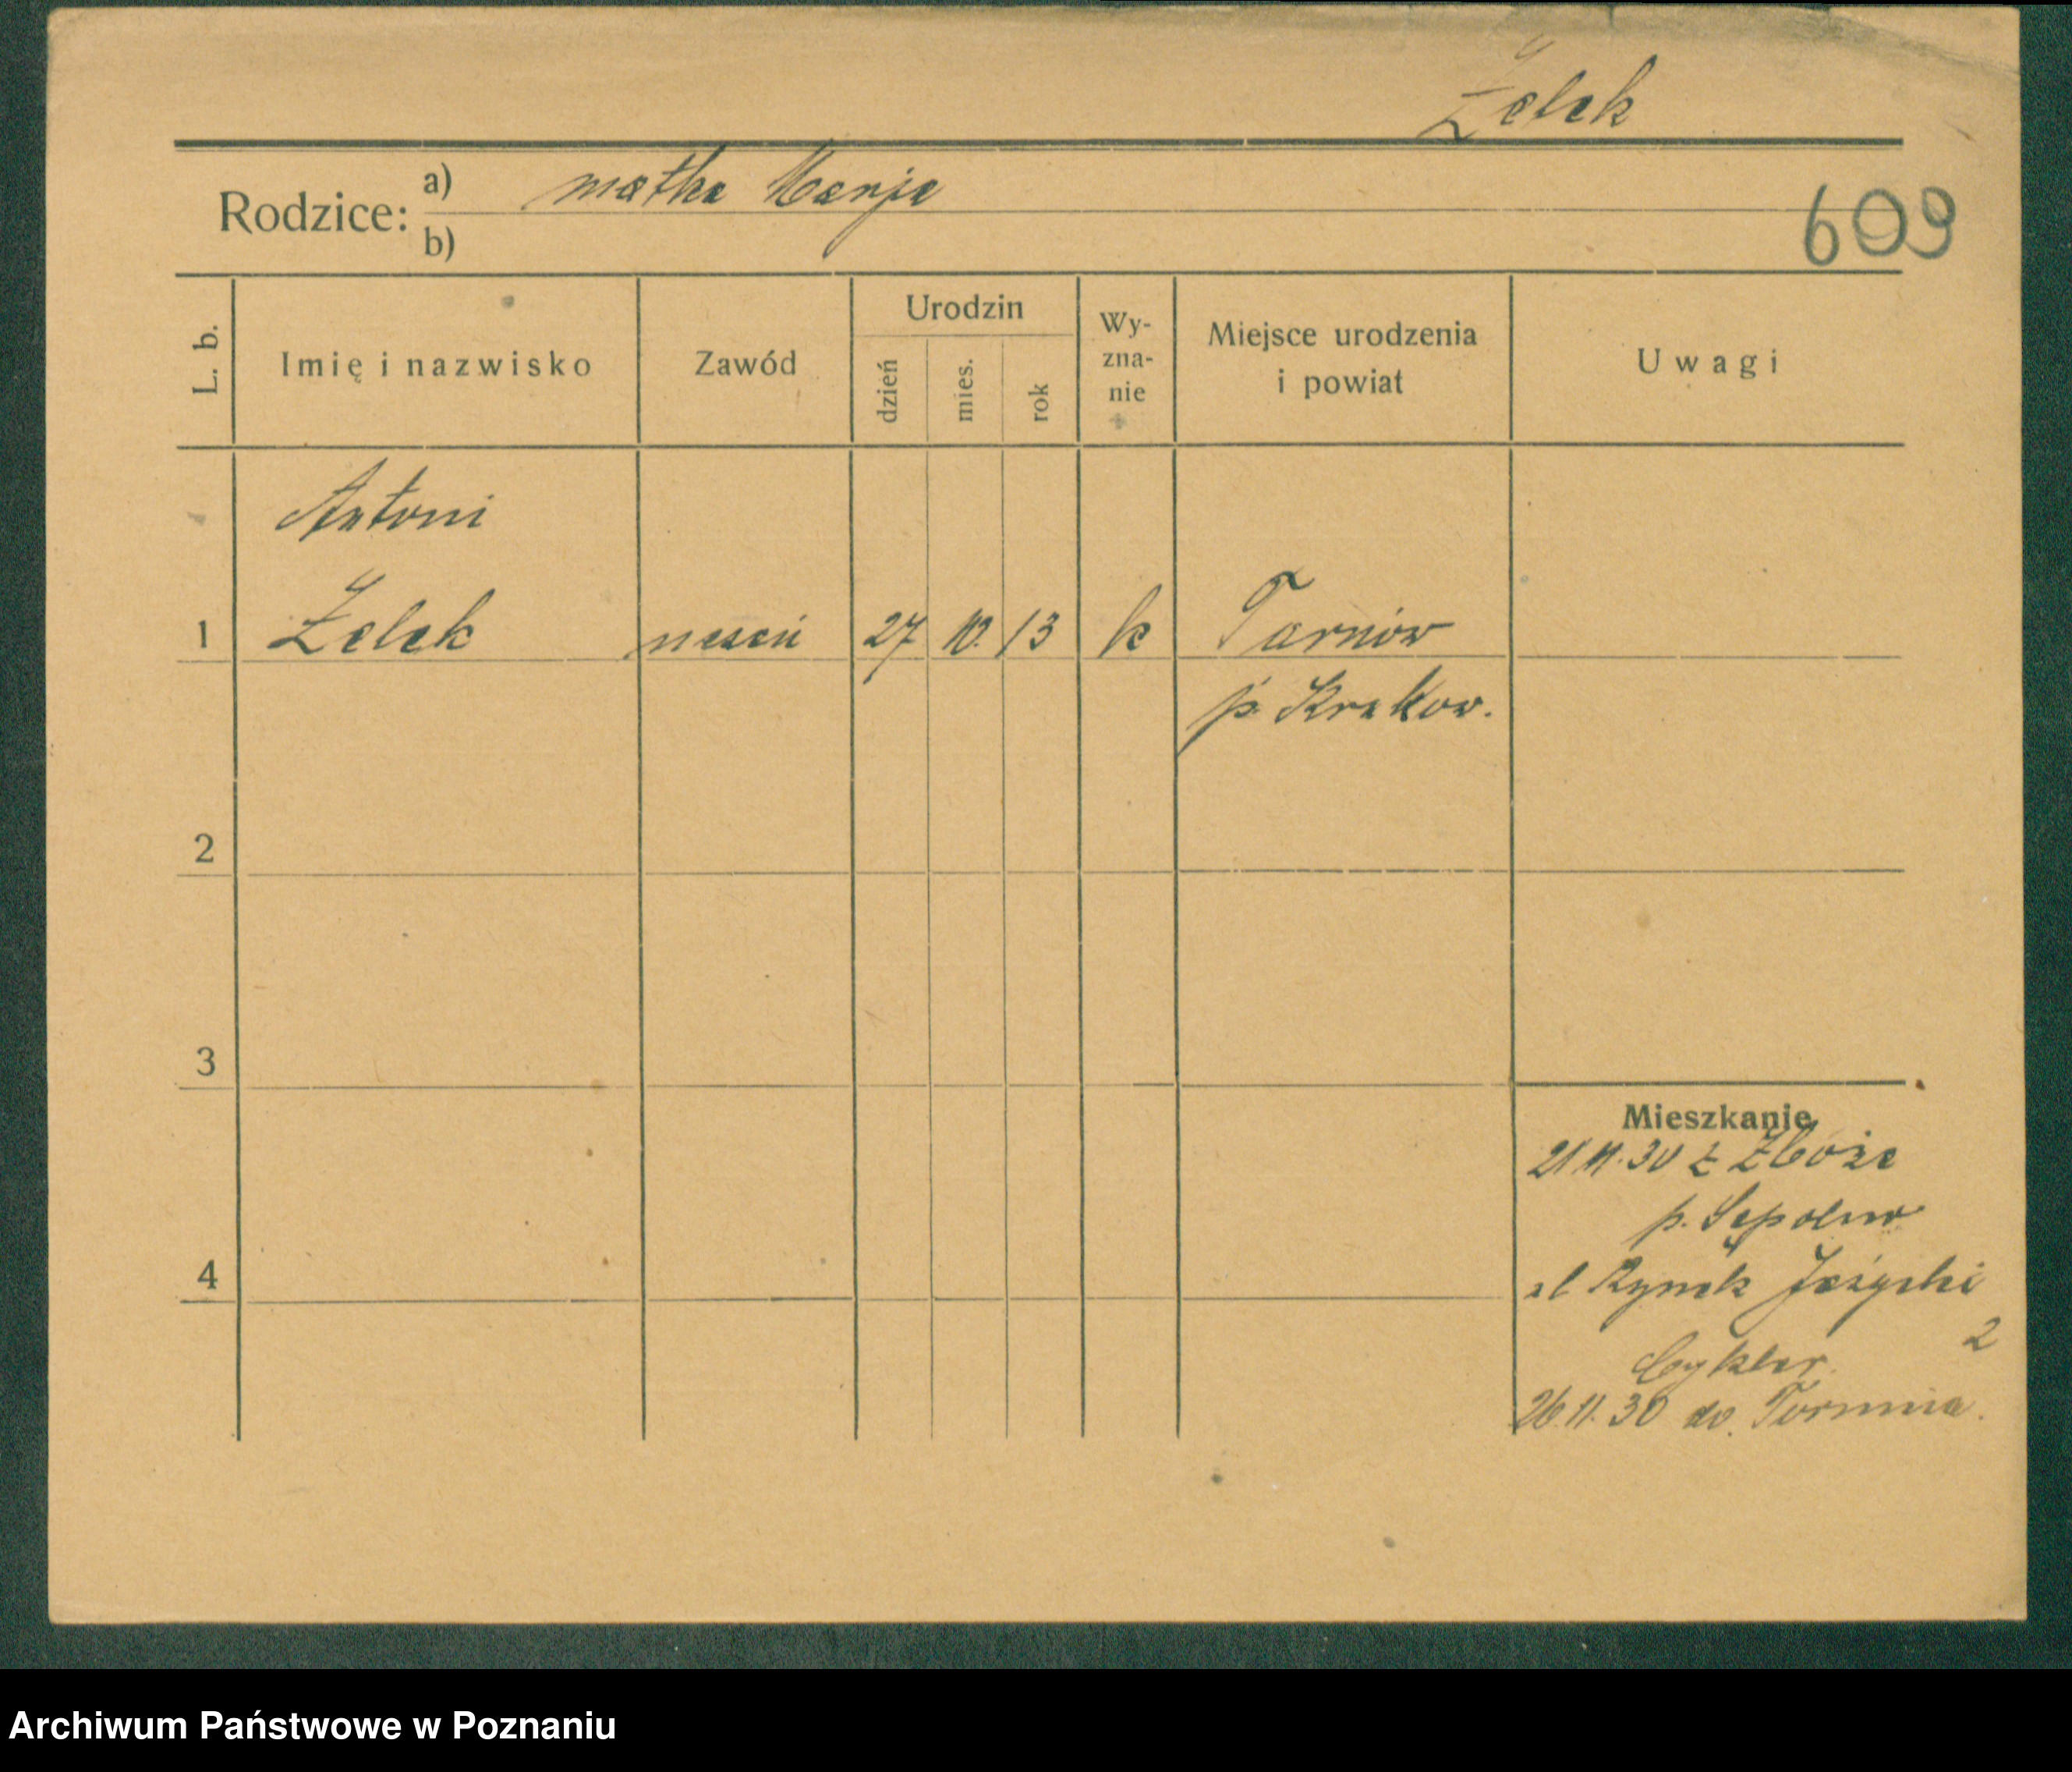 Żelek
Rodzice: a) matka Marja
b)
609
L. b. Imię i nazwisko Zawód Urodzin dzień mies. rok Wy-zna-nie Miejsce urodzenia i powiat Uwagi
Antoni
1 Żelek uczeń 27 10. 13 k Tarnów
p. Krakow.
2
3
Mieszkanie
21 11. 30 z Zboże
p. Sępolno
4 ul Rynek Jeżycki
2
Cykler.
26. 11. 30 do Torunia.
Archiwum Państwowe w Poznaniu